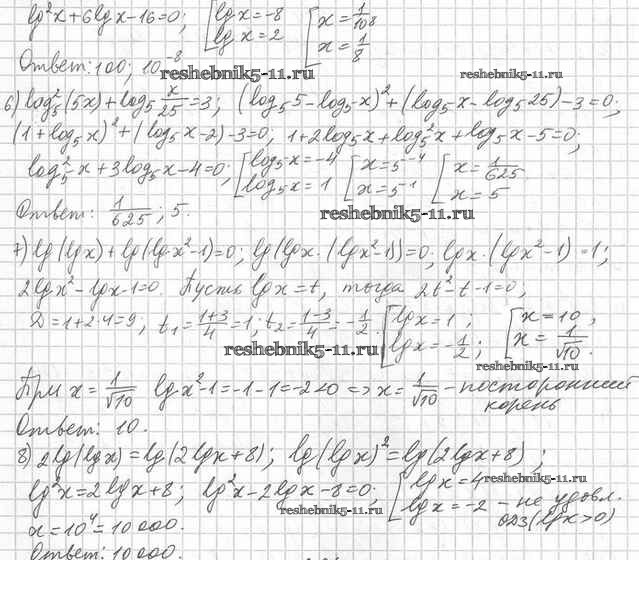 lg²x+6lgx-16=0; [lgx=-8 [x=1/10⁸
lgx=2 x=1/8
Ответ: 100; 10⁻⁸
reshebnik5-11.ru reshebnik5-11.ru
6) log₅²(5x)+log₅ x/25=3; (log₅5-log₅x)²+(log₅x-log₅25)-3=0;
(1+log₅x)²+(log₅x-2)-3=0; 1+2log₅x+log₅²x+log₅x-5=0;
log₅²x+3log₅x-4=0; [log₅x=-4 [x=5⁻⁴ [x=1/625
log₅x=1 x=5⁻¹ x=5
Ответ: 1/625; 5.
reshebnik5-11.ru
7) lg(lgx)+lg(lgx²-1)=0; lg(lgx·(lgx²-1))=0; lgx·(lgx²-1)=1;
2lgx²-lgx-1=0. Пусть lgx=t, тогда 2t²-t-1=0;
Д=1+2·4=9; t₁=(1+3)/4=1; t₂=(1-3)/4=-1/2. [lgx=1; [x=10,
lgx=-1/2; x=1/√10.
reshebnik5-11.ru
При x=1/√10 lgx²-1=-1-1=-2<0 => x=1/√10 - посторонний
корень
Ответ: 10.
8) 2lg(lgx)=lg(2lgx+8); lg(lgx)²=lg(2lgx+8);
lg²x=2lgx+8; lg²x-2lgx-8=0; [lgx=4
reshebnik5-11.ru
lgx=-2 - не удовл.
reshebnik5-11.ru
ОДЗ(lgx>0)
x=10⁴=10000.
Ответ: 10000.